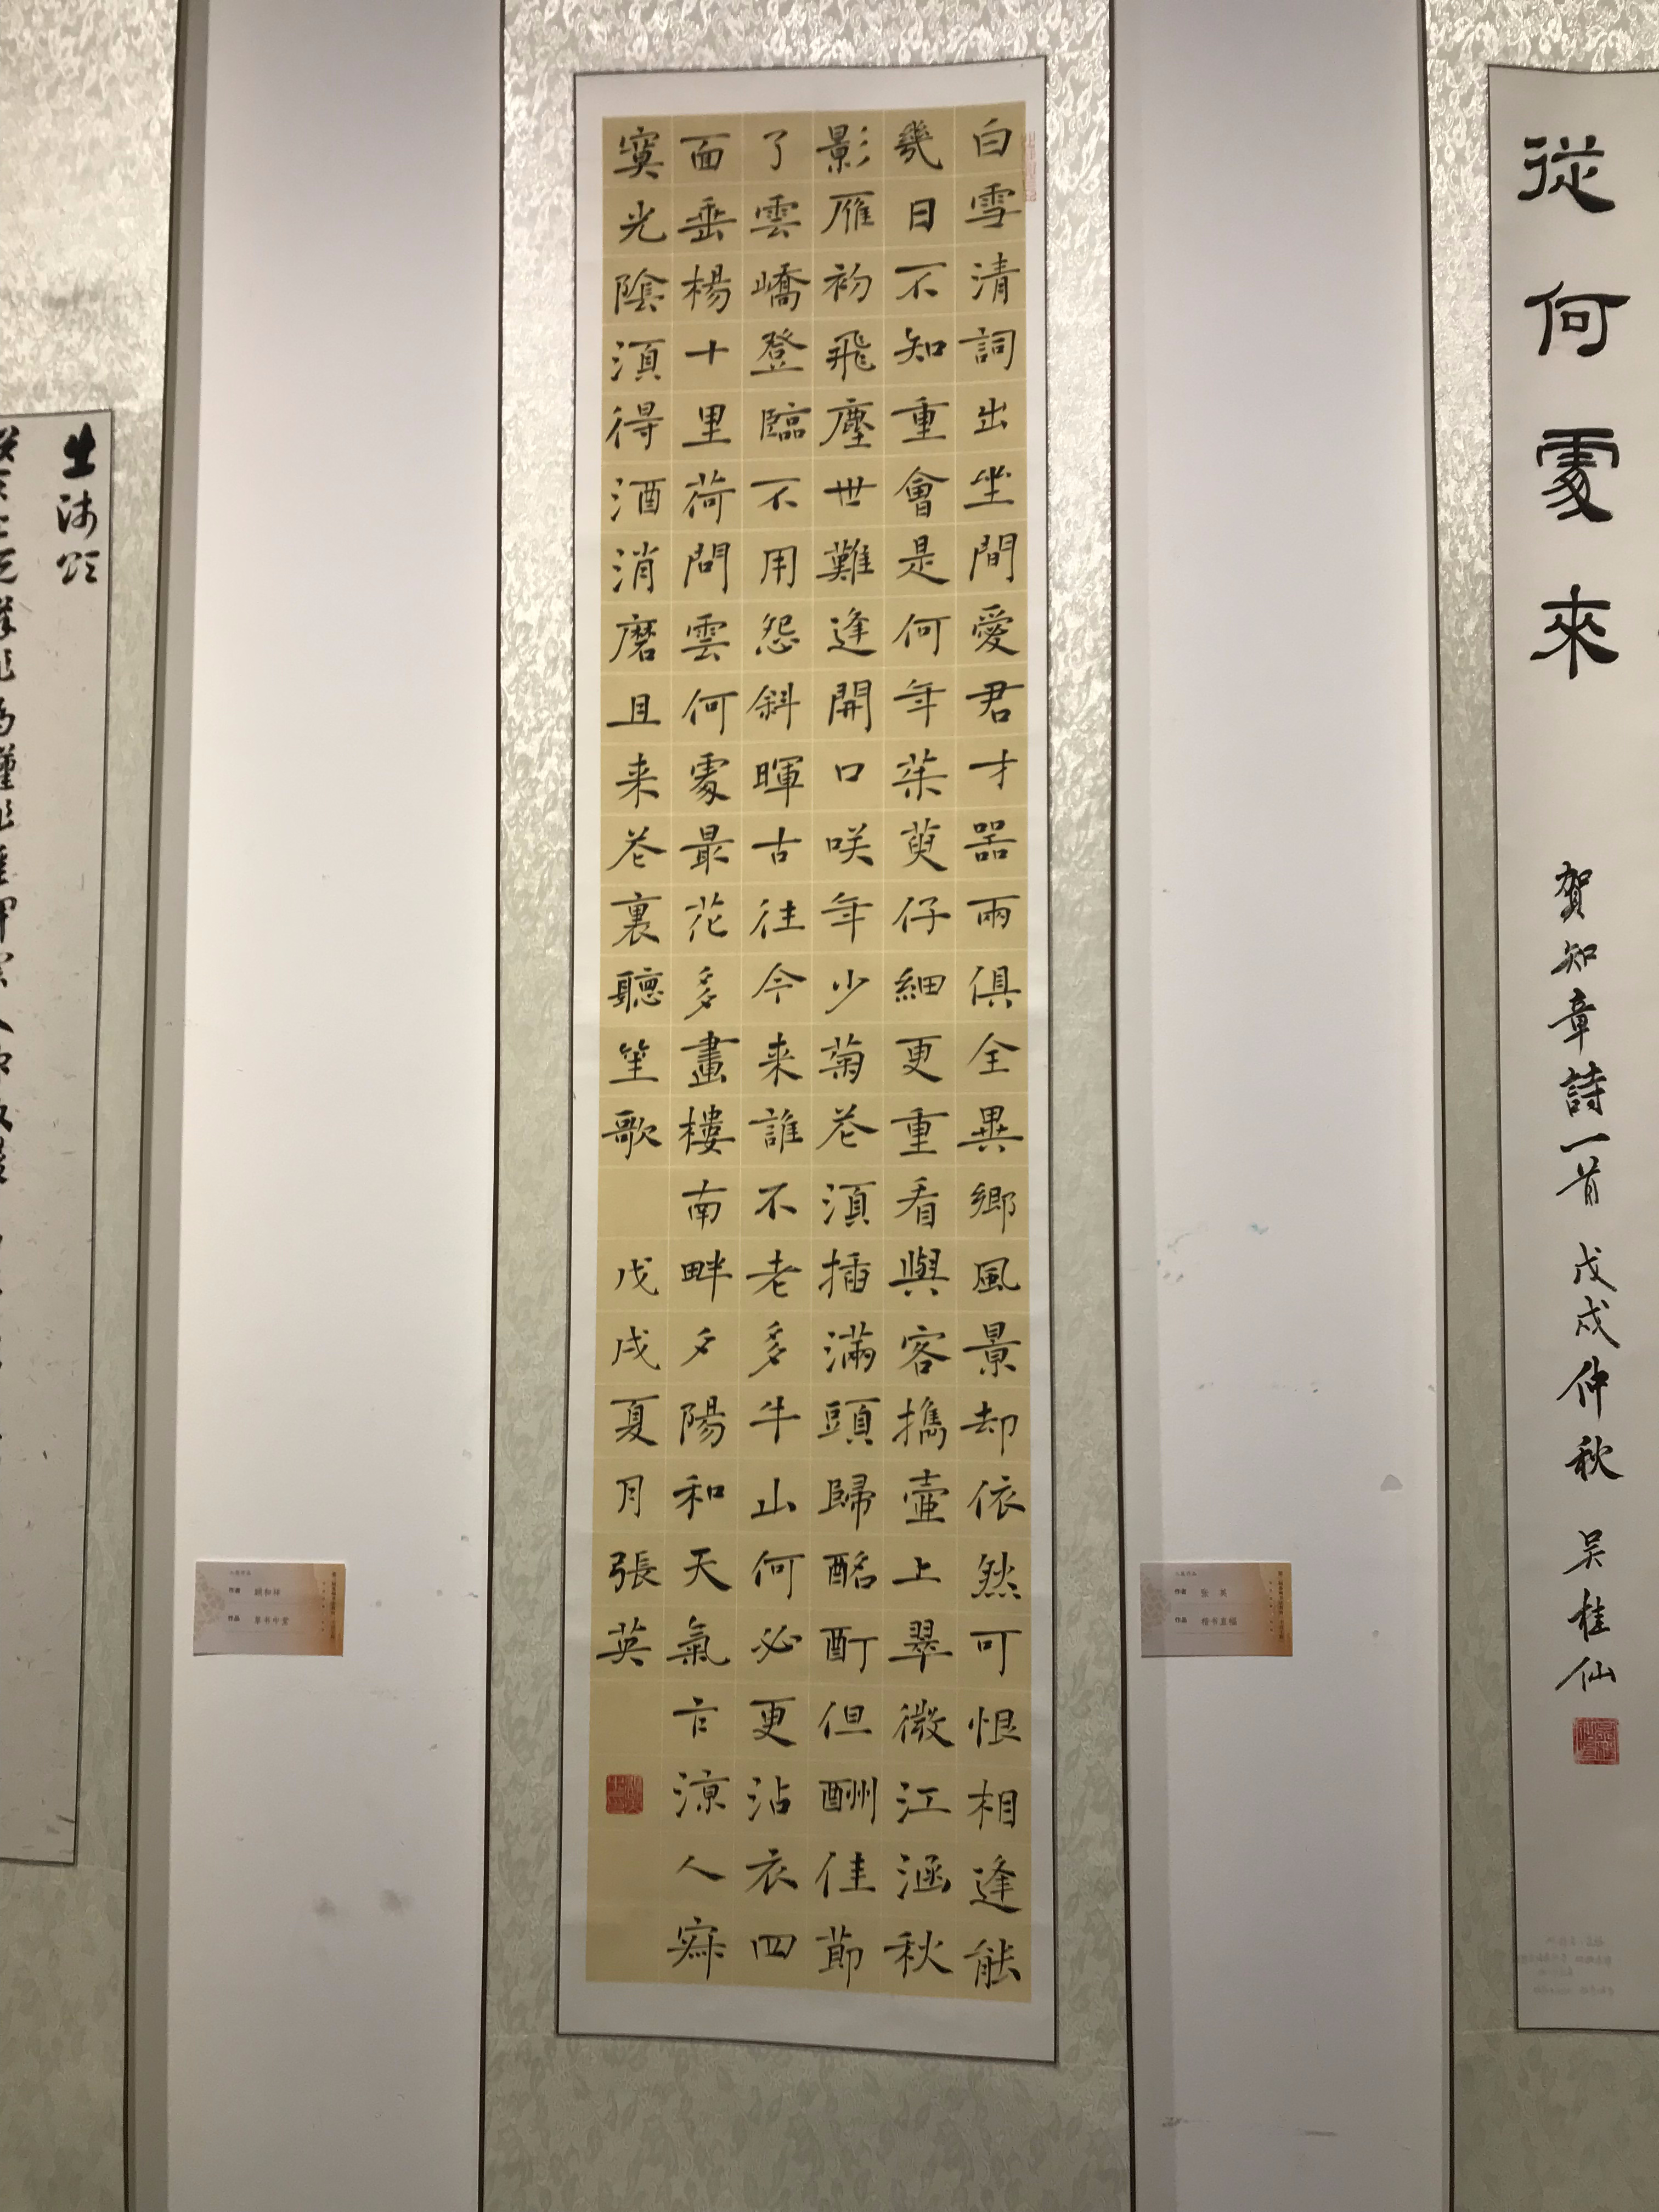 從何處來
賀知章詩一首 戊戌仲秋 吴桂仙
白雪清詞出坐間愛君才器兩俱全異鄉風景却依然可恨相逢能
幾日不知重會是何年茱萸仔細更重看與客擕壺上翠微江涵秋
影雁初飛塵世難逢開口咲年少菊花須插滿頭歸酩酊但酬佳節
了雲嶠登臨不用怨斜暉古往今来誰不老多牛山何必更沾衣四
面垂楊十里荷問雲何處最花多畫樓南畔夕陽和天氣乍涼人寂
寞光陰須得酒消磨且来花裏聽笙歌 戊戌夏月張英
作者 张英
作品 楷书直幅
作者
作品 草书中堂